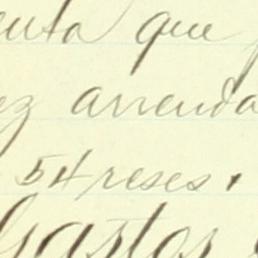 enta que
ez arrenda
54 reses.
Gastos